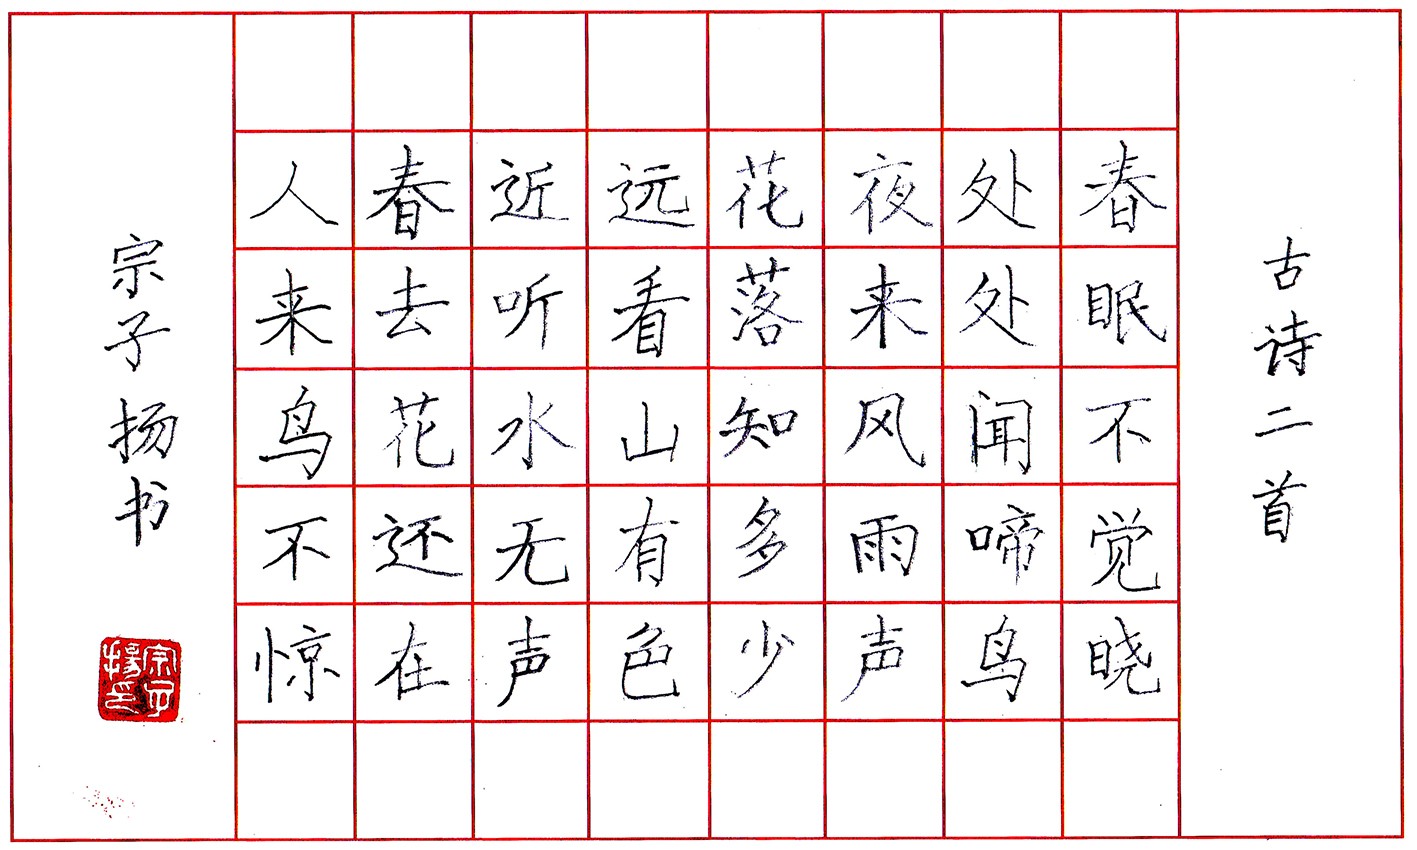 古诗二首
春眠不觉晓
处处闻啼鸟
夜来风雨声
花落知多少
远看山有色
近听水无声
春去花还在
人来鸟不惊
宗子扬书
宗子揚印